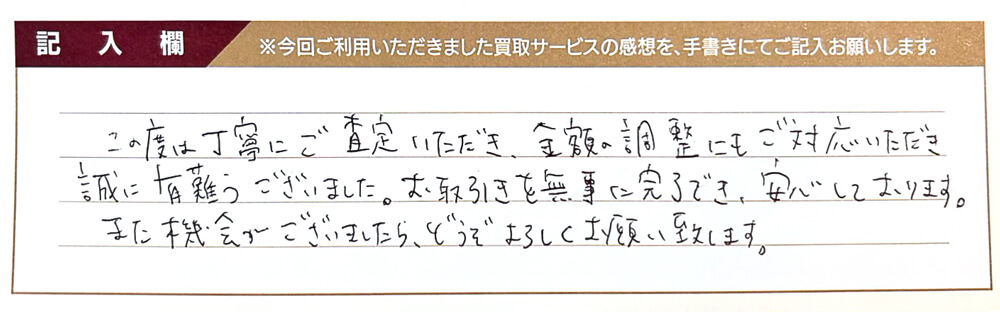 記入欄
※今回ご利用いただきました買取サービスの感想を、手書きにてご記入お願いします。
この度は丁寧にご査定いただき、金額の調整にもご対応いただき
誠に有難うございました。お取引きを無事に完了でき、安心しております。
また機会がございましたら、どうぞよろしくお願い致します。